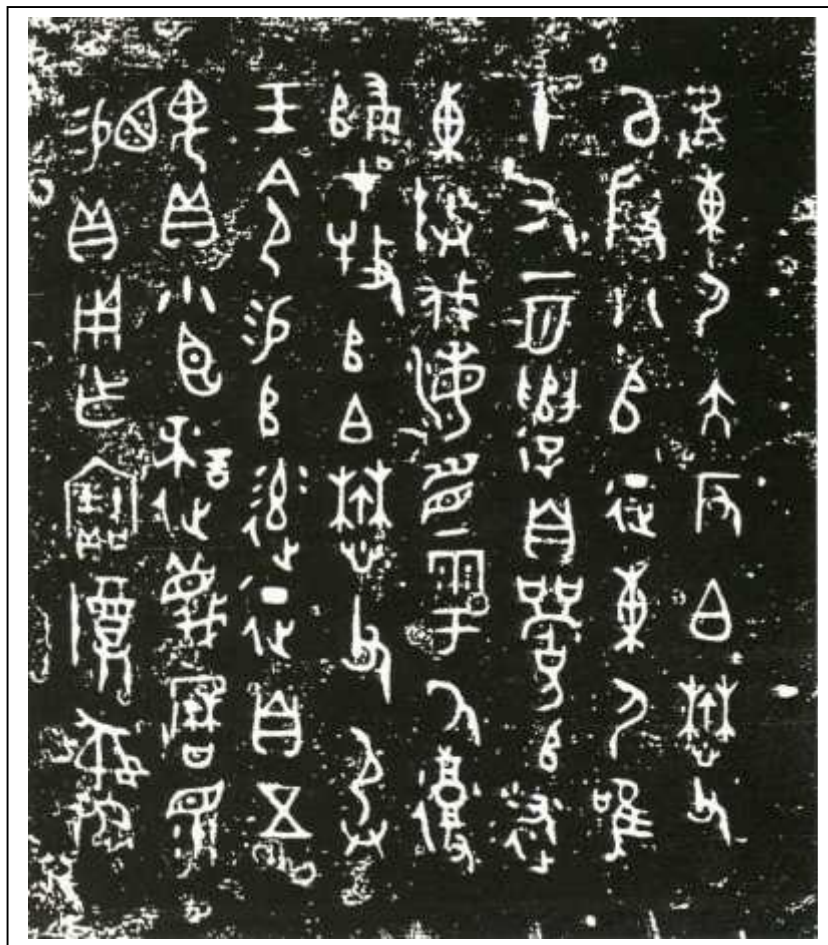 𠭯東尸大反白懋父
以殷八𠂤征東尸唯
十又一月遣自𠂤述
東伐海眉雩氒復
歸才牧𠂤白懋父承
王令易𠂤達征自五
齵貝小臣蔑曆眔
易貝用乍寶尊彝